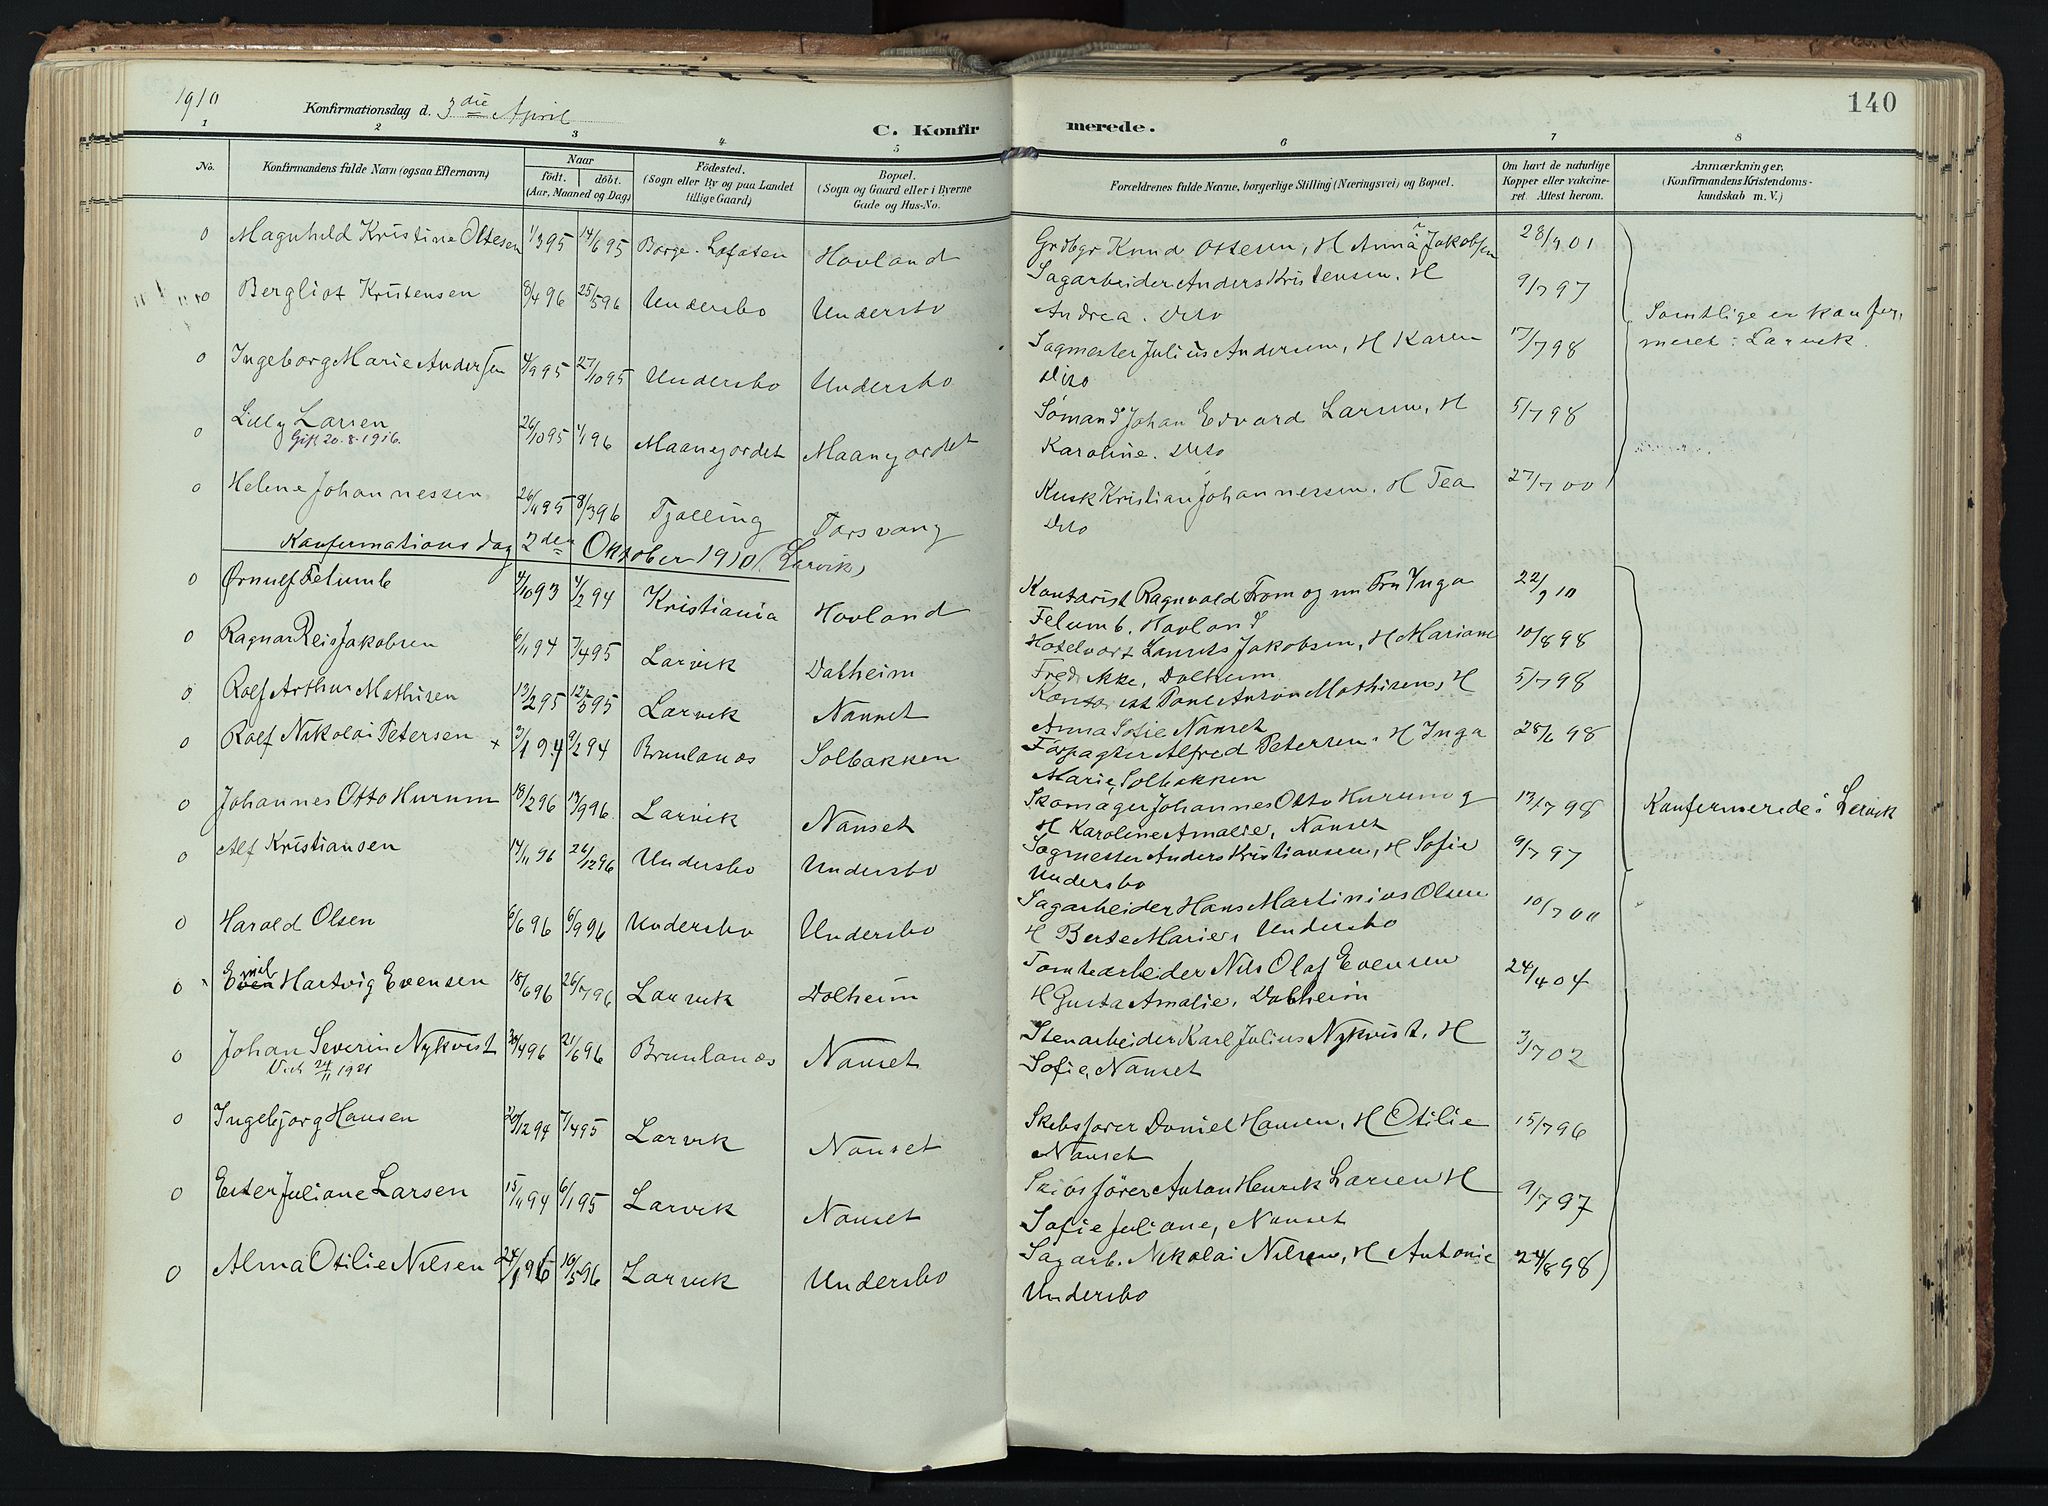 1910
Konfirmationsdag d. 3die April
C. Konfirmerede.
140
1 2 3 4 5 6 7 8
No.
Konfirmandens fulde Navn (ogsaa Efternavn)
Naar
födt. döbt.
(Aar, Maaned og Dag)
Födested.
(Sogn eller By og paa Landet
tillige Gaard)
Bopæl.
(Sogn og Gaard eller i Byerne
Gade og Hus-No.
Forældrenes fulde Navne, borgerlige Stilling (Næringsvei) og Bopæl.
Om havt de naturlige
Kopper eller vakcine-
ret. Attest herom.
Anmærkninger,
(Konfirmandens Kristendoms-
kundskab m. V.)
0 Magnhild Kristine Ottesen 1/3 95 14/6 95 Borge. Lofoten Hovland Grdbgr Knud Ottesen, H Anna Jakobsen 28/9 01
0 Bergliot Kristensen 8/4 96 25/5 96 Undersbo Undersbo Sagarbeider Anders Kristensen, H 9/7 97
Andrea. Dito
Samtlige er konfer-
meret i Larvik.
0 Ingeborg Marie Andersen 4/9 95 27/10 95 Undersbo Undersbo Sagmester Julius Andersen, H Karen 17/7 98
Dito
0 Lilly Larsen 26/10 95 1/1 96 Maanejordet Maanejordet Sømand Johan Edvard Larsen, H 5/7 98
Gift 20.8.1916.
Karoline. Dito
0 Helene Johannessen 26/11 95 8/3 96 Tjølling Torsvang Kusk Kristian Johannessen, H Tea 27/7 00
Dito
Konfirmationsdag 2den Oktober 1910 (Larvik)
0 Ørnulf Felumb 4/10 93 4/2 94 Kristiania Hovland Kontorist Ragnvald From og nu Fru Inga 22/9 10
Felumb, Hovland
0 Ragnar Reis Jakobsen 6/11 94 7/4 95 Larvik Dolheim Hotelvært Laurits Jakobsen, H Mariane 10/8 98
Fredrikke, Dolheim
0 Rolf Arthur Mathisen 13/2 95 12/5 95 Larvik Nanset Kontorist Paul Anton Mathisen, H 5/7 98
Anna Sofie Nanset
0 Rolf Nikolai Petersen x 3/1 94 9/2 94 Brunlanæs Solbakken Forpagter Alfred Petersen, H Inga 28/6 98
Marie, Solbakken
0 Johannes Otto Hurum 18/2 96 13/9 96. Larvik Nanset Skomager Johannes Otto Hurum og 13/7 98
H Karoline Amalie, Nanset
Konfermerede i Larvik
0 Alf Kristiansen 14/11 96 26/12 96 Undersbo Undersbo Sagmester Anders Kristiansen, H Sofie 9/7 97
Undersbo
0 Harald Olsen 6/6 96 6/9 96 Undersbo Undersbo Sagarbeider Hans Martinius Olsen 10/7 00
H Berte Marie, Undersbo
0 Emil Hartvig Evensen 18/6 96 26/7 96 Larvik Dolheim Tomtearbeider Nils Olaf Evensen 24/4 04
H Gusta Amalie, Dolheim
0 Johan Severin Nykvist 26/4 96 21/6 96 Brunlanæs Nanset Stenarbeider Karl Julius Nykvist, H 3/7 02
24/11 1921
Sofie, Nanset
0 Ingebjorg Hansen 20/12 94 7/4 95 Larvik Nanset Skibsfører Daniel Hansen, H Otilie 15/7 96
Nanset
0 Ester Juliane Larsen 15/11 94 6/1 95 Larvik Nanset Skibsfører Anton Henrik Larsen H 9/7 97
Sofie Juliane, Nanset
0 Alma Otilie Nilsen 24/1 96 10/5 96 Larvik Undersbo Sagarb. Nikolai Nilsen, H Antonie 24/8 98
Undersbo